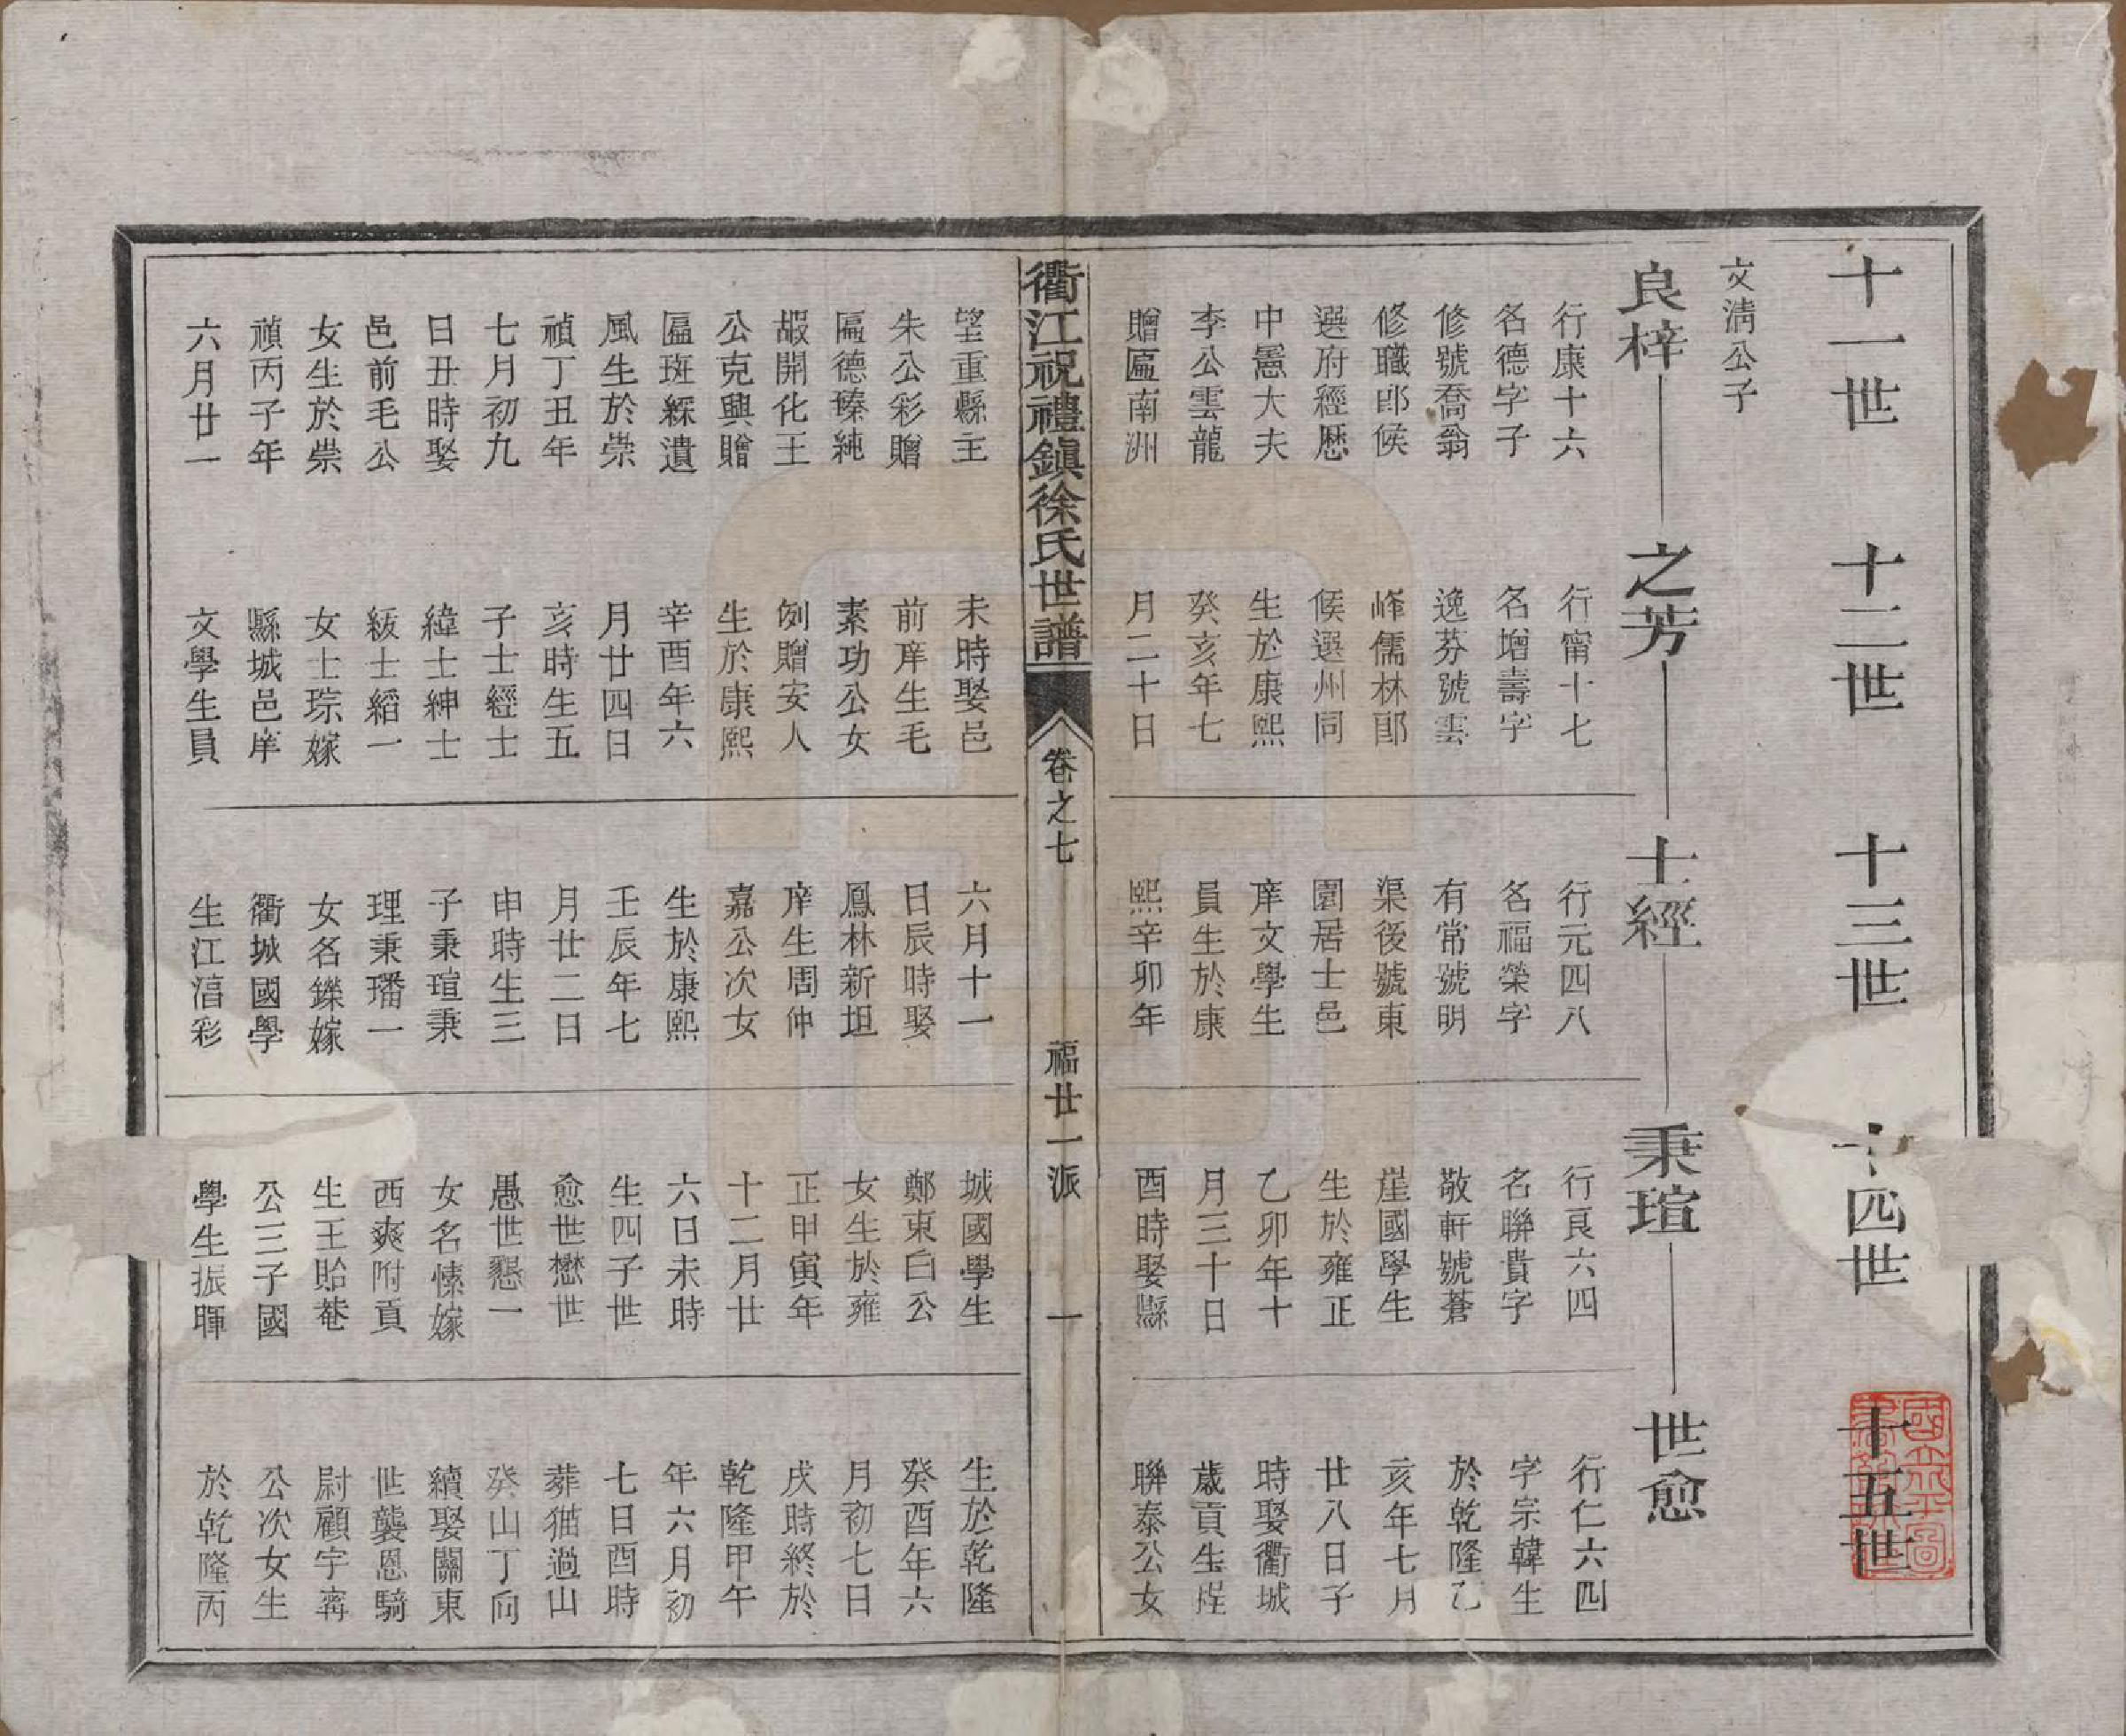 十一世
十二世
十三世
十四世
十五世
文淸公子
良梓
之芳
士經
秉瑄
世愈
行康十六
名德字子
修號喬翁
修職郎候
選府經歷
中憲大夫
李公雲龍
贈匾南洲
行甯十七
名增壽字
逸芬號雲
峰儒林郎
候選州同
生於康熙
癸亥年七
月二十日
行元四八
名福榮字
有常號明
渠後號東
園居士邑
庠文學生
員生於康
熙辛卯年
行良六四
名聯貴字
敬軒號蒼
崖國學生
生於雍正
乙卯年十
月三十日
酉時娶縣
行仁六四
字宗韓生
於乾隆乙
亥年七月
廿八日子
時娶衢城
歲貢生程
聯泰公女
衢江祝禮鎭徐氏世譜
卷之七
福廿一派
一
望重縣主
朱公彩贈
匾德臻純
嘏開化王
公克興贈
匾斑綵遺
風生於崇
禎丁丑年
七月初九
日丑時娶
邑前毛公
女生於崇
禎丙子年
六月廿一
未時娶邑
前庠生毛
素功公女
例贈安人
生於康熙
辛酉年六
月廿四日
亥時生五
子士經士
緯士紳士
紱士縚一
女士琮嫁
縣城邑庠
文學生員
六月十一
日辰時娶
鳳林新坦
庠生周仲
嘉公次女
生於康熙
壬辰年七
月廿二日
申時生三
子秉瑄秉
理秉璠一
女名鑅嫁
衢城國學
生江湻彩
城國學生
鄭東白公
女生於雍
正甲寅年
十二月廿
六日未時
生四子世
愈世懋世
愚世懇一
女名愫嫁
西爽附貢
生王貽菴
公三子國
學生振暉
生於乾隆
癸酉年六
月初七日
戌時終於
乾隆甲午
年六月初
七日酉時
葬猫過山
癸山丁向
續娶關東
世襲恩騎
尉顧宇寗
公次女生
於乾隆丙